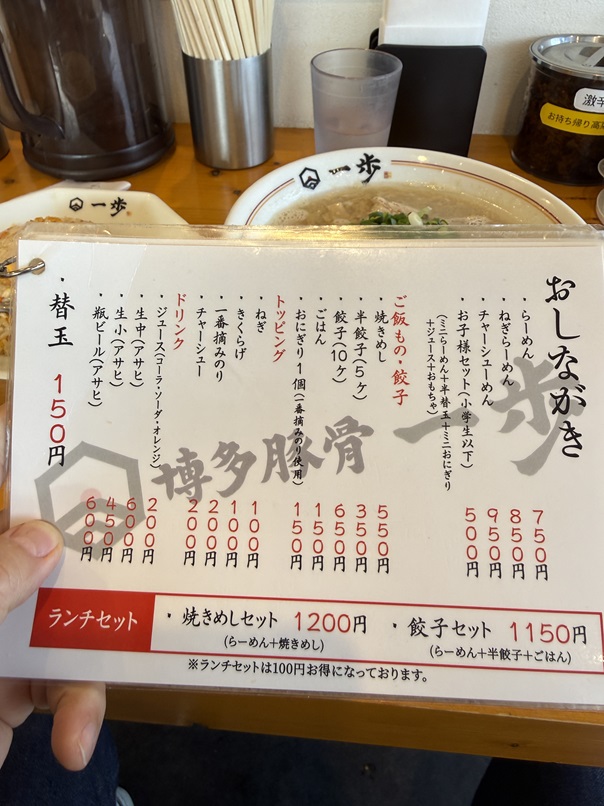 激辛
お持ち帰り高
一歩
一歩
おしながき
・らーめん 750円
・ねぎらーめん 850円
・チャーシューめん 950円
・お子様セット(小学生以下) 500円
(ミニらーめん+半替玉+ミニおにぎり
+ジュース+おもちゃ)
ご飯もの・餃子
・焼きめし 550円
・半餃子(5ヶ) 350円
・餃子(10ヶ) 650円
・ごはん 150円
・おにぎり1個(一番摘みのり使用) 150円
トッピング
・ねぎ 100円
・きくらげ 100円
・一番摘みのり 200円
・チャーシュー 200円
ドリンク
・ジュース(コーラ・ソーダ・オレンジ) 200円
・生中(アサヒ) 600円
・生小(アサヒ) 450円
・瓶ビール(アサヒ) 600円
・替玉 150円
博多豚骨 一歩
ランチセット
・焼きめしセット 1200円
(らーめん+焼きめし)
・餃子セット 1150円
(らーめん+半餃子+ごはん)
※ランチセットは100円お得になっております。